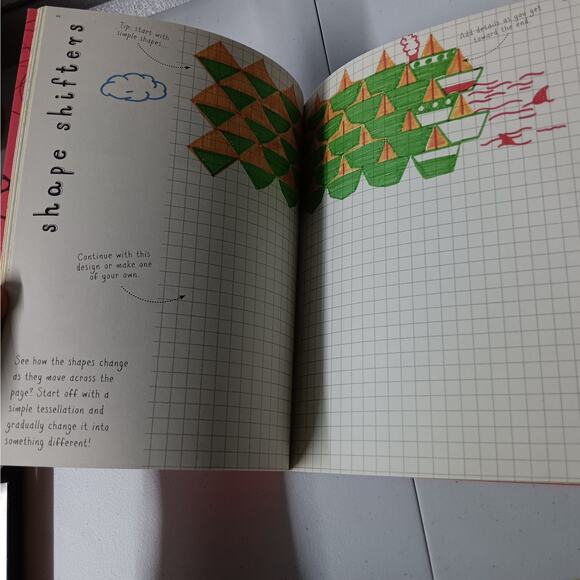 shape shifters
Tip: start with
simple shapes...
Add details as you get
toward the end.
Continue with this
design or make one
of your own.
See how the shapes change
as they move across the
page? Start off with a
simple tessellation and
gradually change it into
something different!